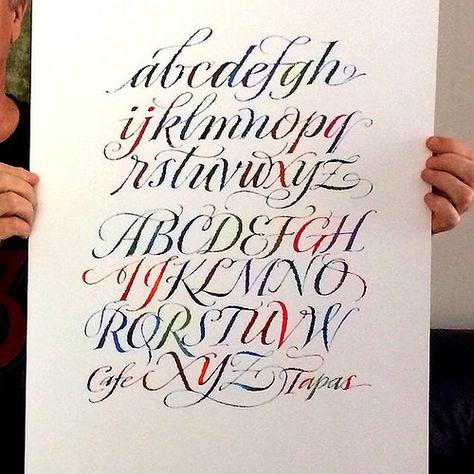 abcdefgh
ijklmnopq
rstuvwxyz
ABCDEFGH
IJKLMNO
RQRSTUVW
XYZ
Cafe Tapas